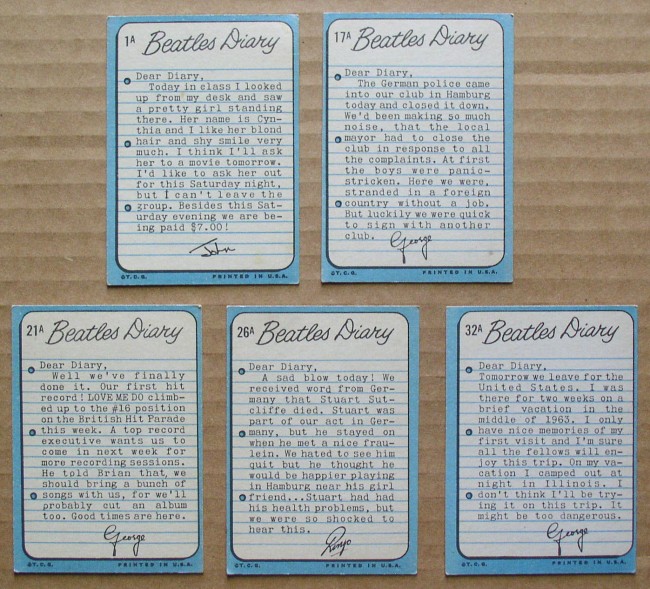 1A Beatles Diary
Dear Diary,
Today in class I looked
up from my desk and saw
a pretty girl standing
there. Her name is Cyn-
thia and I like her blond
hair and shy smile very
much. I think I'll ask
her to a movie tomorrow.
I'd like to ask her out
for this Saturday night,
but I can't leave the
group. Besides this Sat-
urday evening we are be-
ing paid $7.00!
John
©T.C.G. PRINTED IN U.S.A.
17A Beatles Diary
Dear Diary,
The German police came
into our club in Hamburg
today and closed it down.
We'd been making so much
noise, that the local
mayor had to close the
club in response to all
the complaints. At first
the boys were panic-
stricken. Here we were,
stranded in a foreign
country without a job.
But luckily we were quick
to sign with another
club. George
©T.C.G. PRINTED IN U.S.A.
21A Beatles Diary
Dear Diary,
Well we've finally
done it. Our first hit
record! LOVE ME DO climb-
ed up to the #16 position
on the British Hit Parade
this week. A top record
executive wants us to
come in next week for
more recording sessions.
He told Brian that, we
should bring a bunch of
songs with us, for we'll
probably cut an album
too. Good times are here.
George
©T.C.G. PRINTED IN U.S.A.
26A Beatles Diary
Dear Diary,
A sad blow today! We
received word from Ger-
many that Stuart Sut-
cliffe died. Stuart was
part of our act in Ger-
many, but he stayed on
when he met a nice frau-
lein. We hated to see him
quit but he thought he
would be happier playing
in Hamburg near his girl
friend...Stuart had had
his health problems, but
we were so shocked to
hear this.
Ringo
©T.C.G. PRINTED IN U.S.A.
32A Beatles Diary
Dear Diary,
Tomorrow we leave for the
United States. I was
there for two weeks on a
brief vacation in the
middle of 1963. I only
have nice memories of my
first visit and I'm sure
all the fellows will en-
joy this trip. On my va-
cation I camped out at
night in Illinois. I
don't think I'll be try-
ing it on this trip. It
might be too dangerous.
George
©T.C.G. PRINTED IN U.S.A.